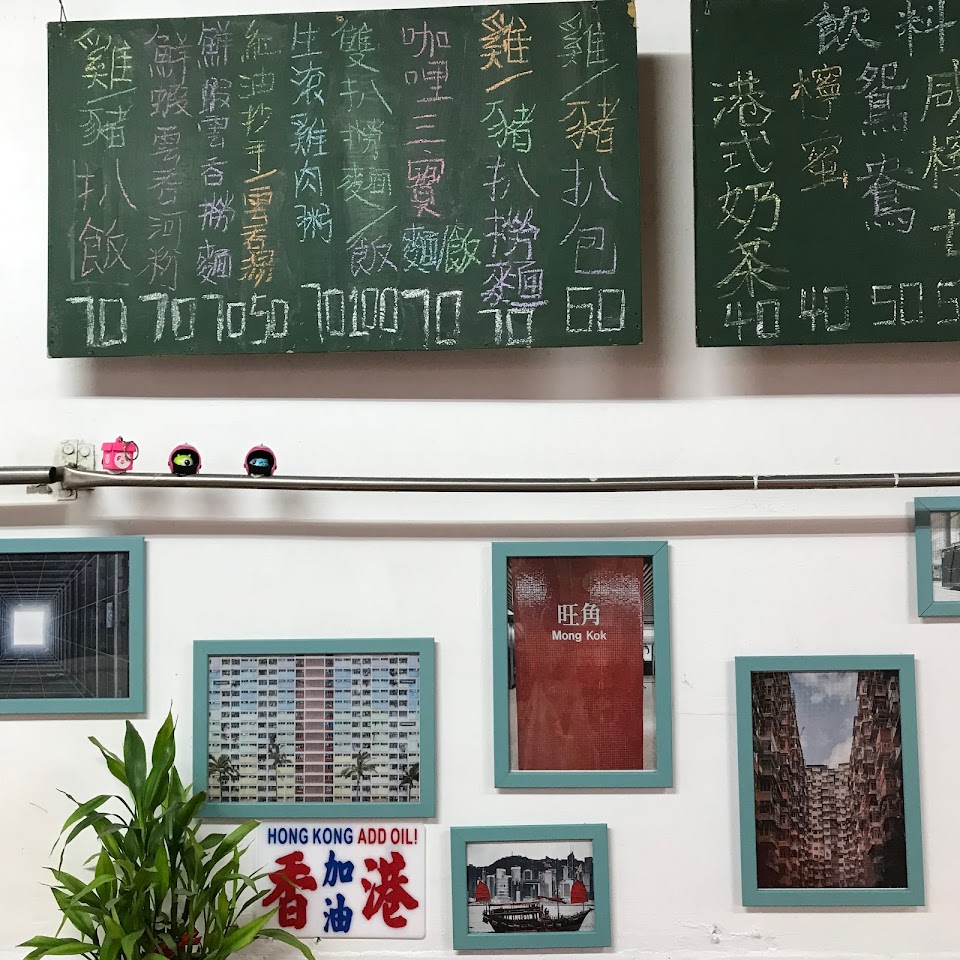 雞/豬扒包 60
雞/豬扒撈麵 70
咖哩三寶麵飯 70
雙扒撈麵/飯 100
生滾雞肉粥 70
紅油抄手/雲吞湯 50
鮮蝦雲吞撈麵 70
鮮蝦雲吞河粉 70
雞/豬扒飯 70
飲料
咸檸
鴛鴦 50
檸蜜 40
港式奶茶 40
旺角
Mong Kok
HONG KONG ADD OIL!
香加油港